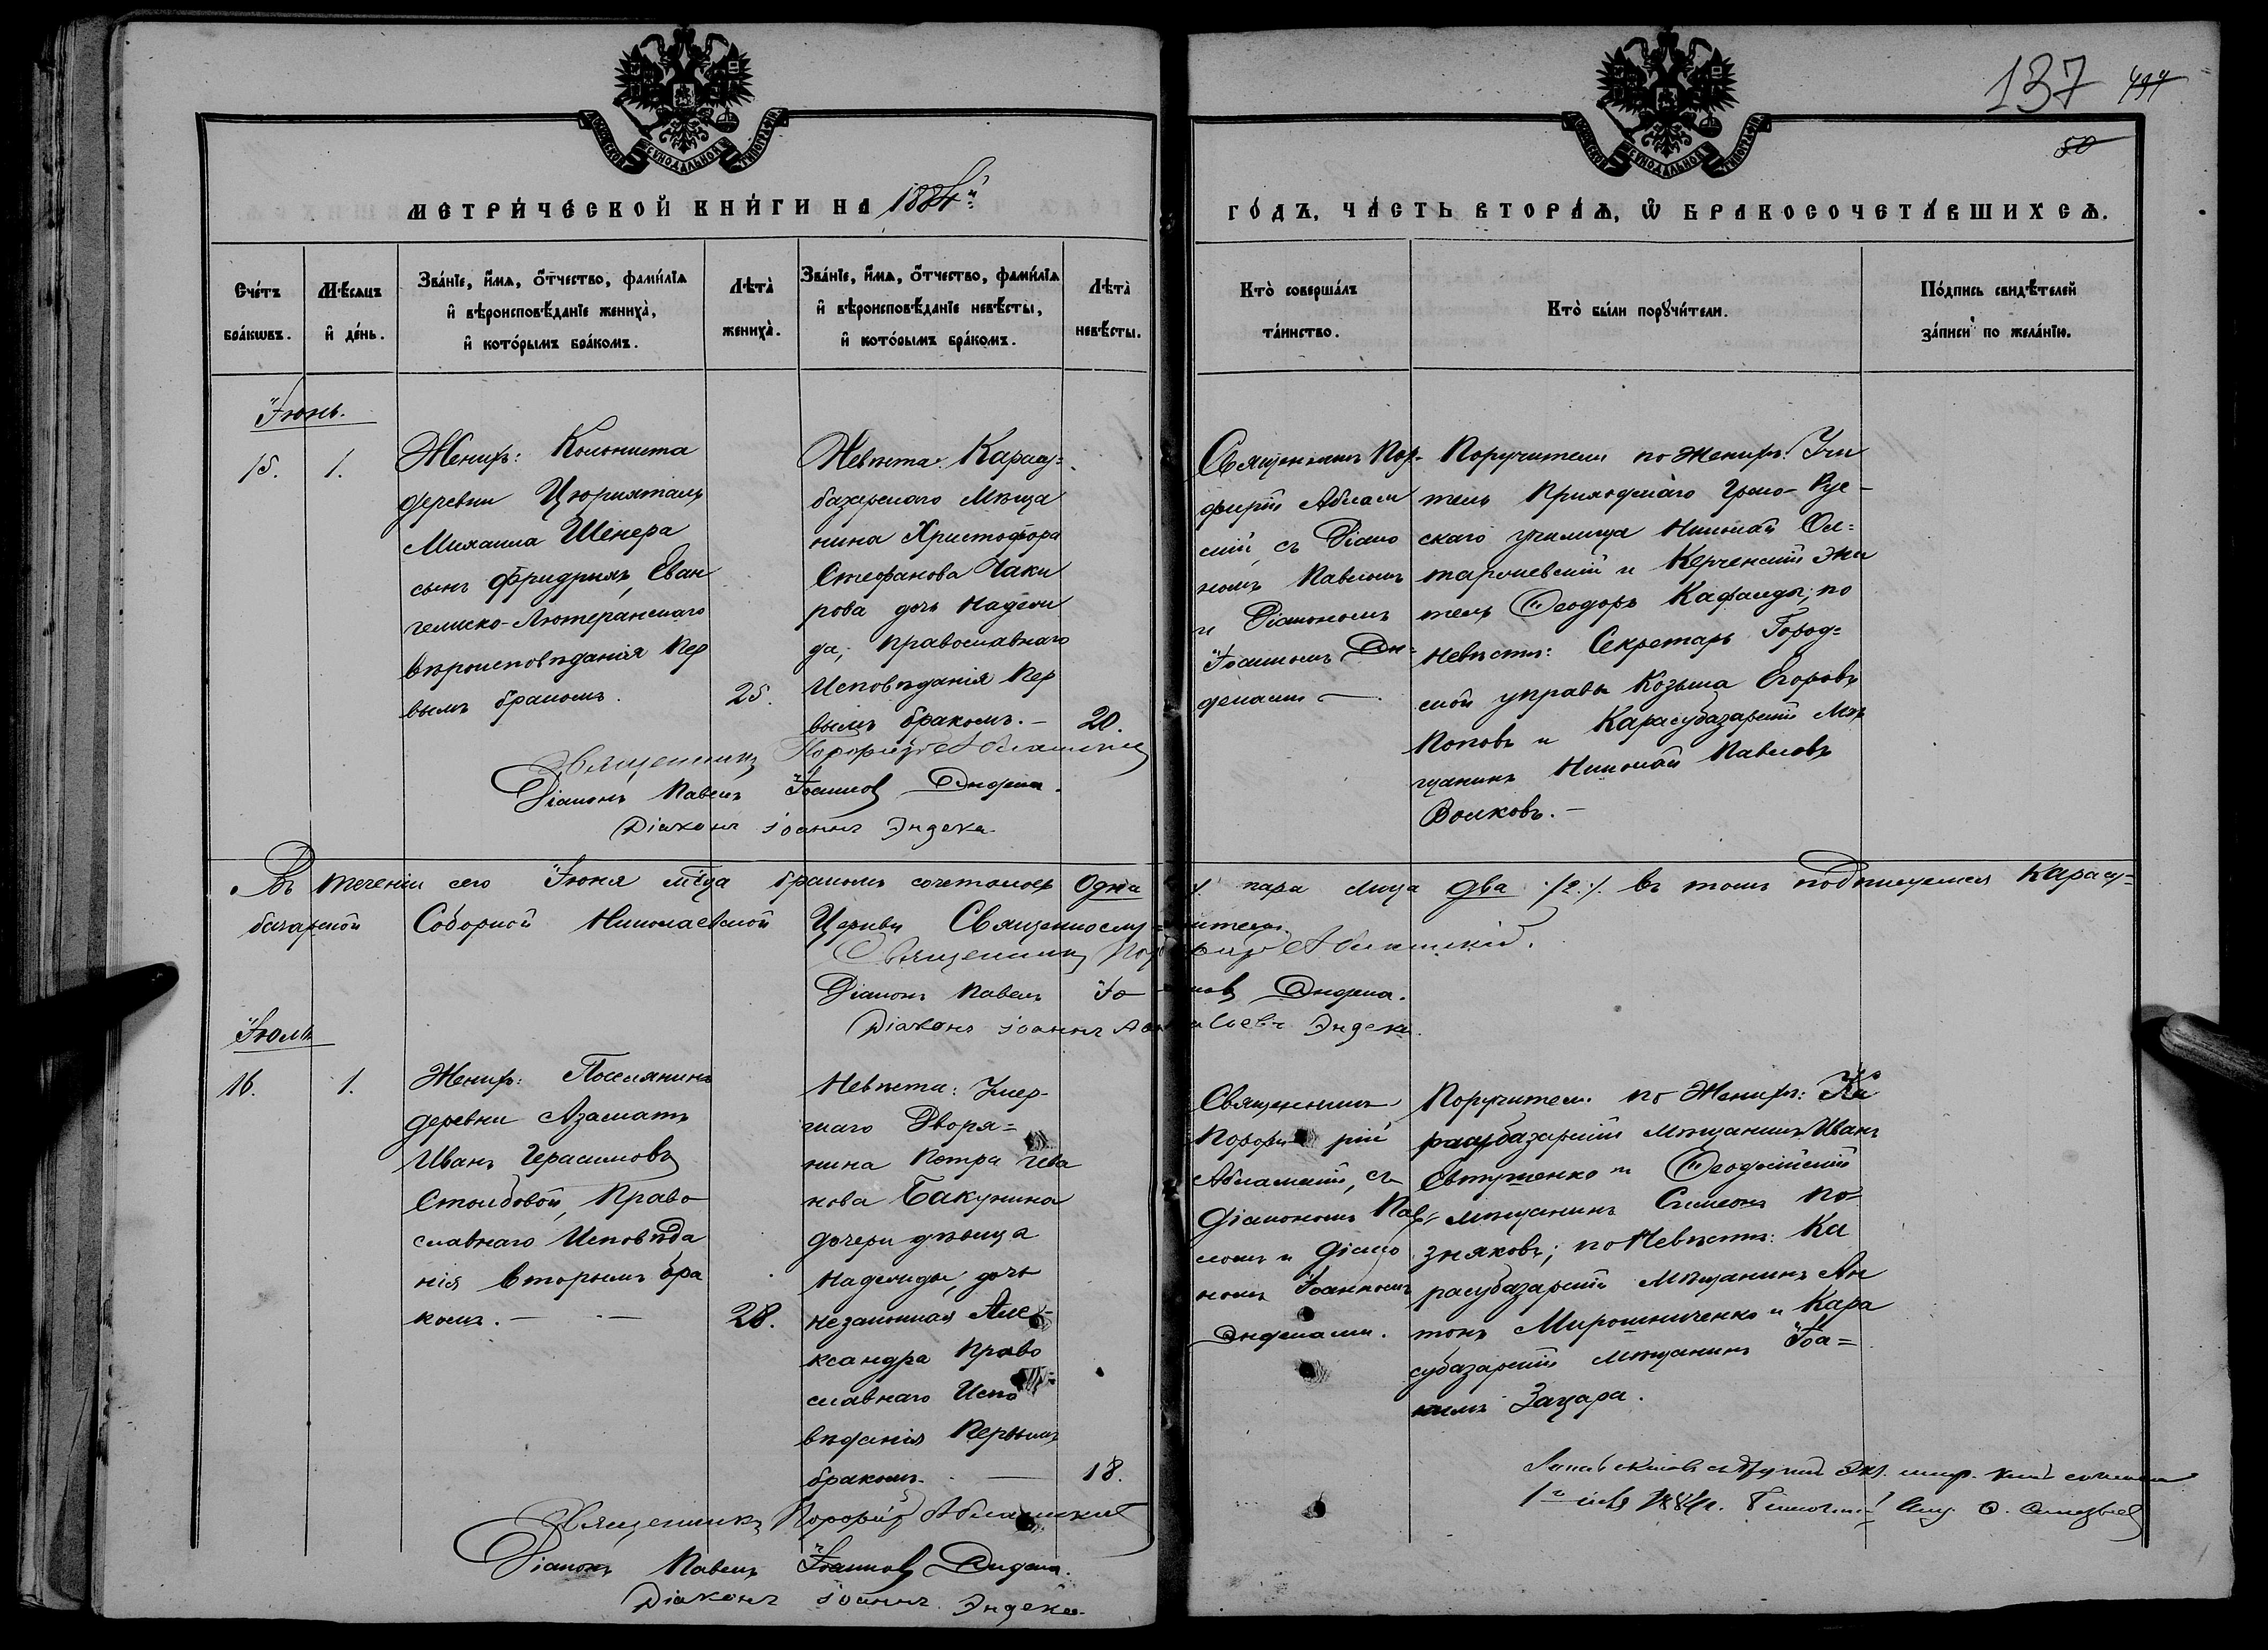 137
50
МОСКОВСКОЙ СѴНОДАЛЬНОЙ ТИПОГРАФІИ
МОСКОВСКОЙ СѴНОДАЛЬНОЙ ТИПОГРАФІИ
МЕТРИ́ЧЕСКОЙ КНИ́ГИ НА 1884й
ГО́ДЪ, ЧА́СТЬ ВТОРА́Ѧ, Ѽ БРАКОСОЧЕТА́ВШИХСѦ.
Сче́тъ
бра́кѡвъ.
Мѣ́сѧцъ
и҆ де́нь.
Зва́нїе, и҆́мѧ, ѻ҆́тчество, фами́лїѧ
и҆ вѣроисповѣ́данїе жениха̀,
и҆ кото́рымъ бра́комъ.
Лѣта̀
жениха̀.
Зва́нїе, и҆́мѧ, ѻ҆́тчество, фами́лїѧ
и҆ вѣроисповѣ́данїе невѣ́сты,
и҆ кото́рымъ бра́комъ.
Лѣта̀
невѣ́сты.
Кто̀ соверша́лъ
та́инство.
Кто̀ бы́ли порꙋчи́тели.
По́дпись свидѣ́телей
за́писи по жела́нїю.
Іюнь.
15.
1.
Женихъ: Колониста
деревни Цюрихталь
Михаила Шенера
сынъ Фридрихъ, Еван
гелиско-Лютеранскаго
вѣроисповѣданія Пер
вымъ бракомъ.
25.
Невѣста: Карасу=
базарскаго Мѣща
нина Христофора
Стефанова Чаки
рова дочь Надеж
да, Православнаго
Исповѣданія Пер
вымъ бракомъ. —
20.
Священникъ Пор-
фирій Аблам
скій съ Діако
номъ Павломъ
и Діакономъ
Іоанномъ Эн-
деками —
Поручители по Женихѣ: Учи
тель Приходскаго Греко-Рус-
скаго училища Николай
и Керченскій жи
тель Ѳеодоръ по
Невѣстѣ: Секретарь Город=
ской управы Козьма Егоровъ
Поповъ и Карасубазарскій Мѣ
щанинъ Николай Павловъ
Волковъ. —
Священникъ Порфирій Абламскій
Діаконъ Павелъ Іоанновъ Эндека.
Діаконъ Іоаннъ Эндека
Въ теченіи сего Іюня мѣца бракомъ сочеталось Одна 1. пара лица два /2./. въ томъ подписуемся Карасу=
базарской Соборной Николаевской Церкви Священнослужители
Священникъ Порфирій Абламскій.
Діаконъ Павелъ Іоанновъ Эндека.
Діаконъ Іоаннъ Эндека.
Іюль
16.
1.
Женихъ: Поселянинъ
деревни Азаматъ
Иванъ Герасимовъ
Столбовой, Право
славнаго Исповѣда
нія Вторымъ бра
комъ. — —
28.
Невѣста: Умер-
шаго Дворя=
нина Петра Ива
нова Бакунина
дочери дѣвица
Надежды, дочь
незаконная Але-
ксандра Право
славнаго Испо
вѣданія Первымъ
бракомъ. —
18.
Священникъ
Порфирій
Абламскій, съ
Діакономъ Пав
ломъ и Діако
номъ Іоанномъ
Эндеками.
Поручители по Женихѣ: Ка
расубазарскій мѣщанинъ Иванъ
Евтушенко и Ѳеодосійскій
мѣщанинъ Симеонъ По
зняковъ; по Невѣстѣ: Ка
расубазарскій Мѣщанинъ Ан
тонъ Мирошниченко и Кара
субазарскій мѣщанинъ Іоа=
кимъ Зацара.
Священникъ Порфирій Абламскій
Діаконъ Павелъ Іоанновъ Эндека.
Діаконъ Іоаннъ Эндека.